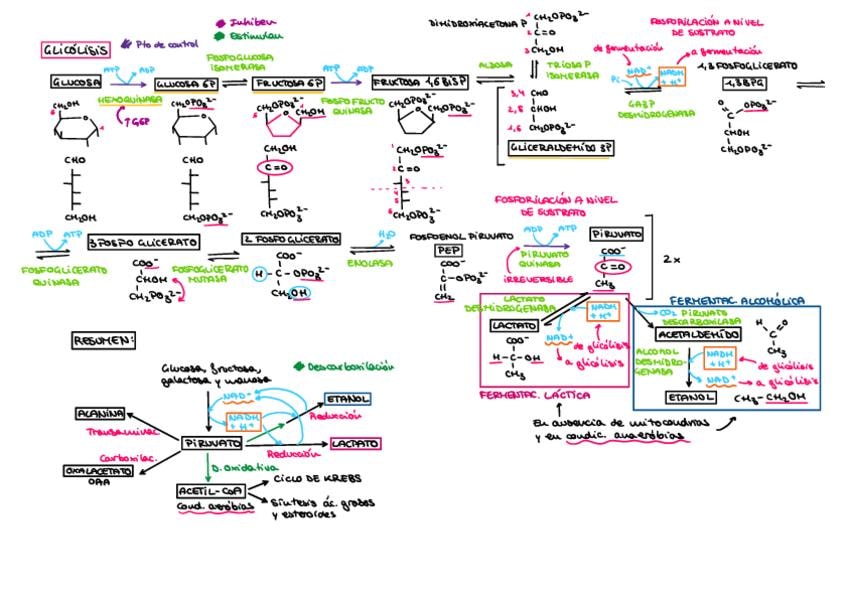 GLICÓLISIS
Pto de control
Inhiben
Estimulan
GLUCOSA
ATP
ADP
HEXOQUINASA
G6P
GLUCOSA 6P
FOSFOGLUCOSA
ISOMERASA
FRUCTOSA 6P
ATP
ADP
FOSFO FRUCTO
QUINASA
FRUCTOSA 1,6 BISP
ALDOSA
DIHIDROXIACETONA P
CH₂OPO₃²⁻
C=O
CH₂OH
TRIOSA P
ISOMERASA
3,4 CHO
2,5 CHOH
1,6 CH₂OPO₃²⁻
GLICERALDEHÍDO 3P
FOSFORILACIÓN A NIVEL
DE SUSTRATO
de fermentación
a fermentación
Pi
NAD⁺
NADH
+ H⁺
GA3P
DESHIDROGENASA
1,3 FOSFOGLICERATO
1,3BPG
O
C
OPO₃²⁻
CHOH
CH₂OPO₃²⁻
CH₂OH
CH₂OPO₃²⁻
CH₂OPO₃²⁻
CH₂OH
CH₂OPO₃²⁻
CH₂OPO₃²⁻
CHO
CH₂OH
CHO
CH₂OPO₃²⁻
CH₂OH
C=O
CH₂OPO₃²⁻
CH₂OPO₃²⁻
C=O
CH₂OPO₃²⁻
ADP
ATP
FOSFOGLICERATO
QUINASA
3 FOSFO GLICERATO
COO⁻
CHOH
CH₂PO₃²⁻
FOSFOGLICERATO
MUTASA
2 FOSFOGLICERATO
COO⁻
H-C-OPO₃²⁻
CH₂OH
H₂O
ENOLASA
FOSFOENOL PIRUVATO
PEP
COO⁻
C-OPO₃²⁻
CH₂
FOSFORILACIÓN A NIVEL
DE SUSTRATO
ADP
ATP
PIRUVATO
QUINASA
IRREVERSIBLE
PIRUVATO
COO⁻
C=O
CH₃
2x
LACTATO
DESHIDROGENASA
LACTATO
COO⁻
H-C-OH
CH₃
NADH
+ H⁺
NAD⁺
de glicólisis
a glicólisis
FERMENTAC. LÁCTICA
FERMENTAC. ALCOHÓLICA
CO₂
PIRUVATO
DESCARBOXILASA
ACETALDEHÍDO
H
C
O
CH₃
ALCOHOL
DESHIDRO-
GENASA
NADH
+ H⁺
NAD⁺
de glicólisis
a glicólisis
ETANOL
CH₃-CH₂OH
En ausencia de mitocondrias
y en condic. anaeróbias
RESUMEN:
Glucosa, fructosa,
galactosa y manosa
Descarboxilación
NAD⁺
NADH
+ H⁺
ETANOL
Reducción
ALANINA
Transaminac.
PIRUVATO
LACTATO
Reducción
Carboxilac.
OXALACETATO
OAA
D. oxidativa
ACETIL-CoA
Cond. aeróbias
CICLO DE KREBS
Síntesis ác. grasos
y esteroides